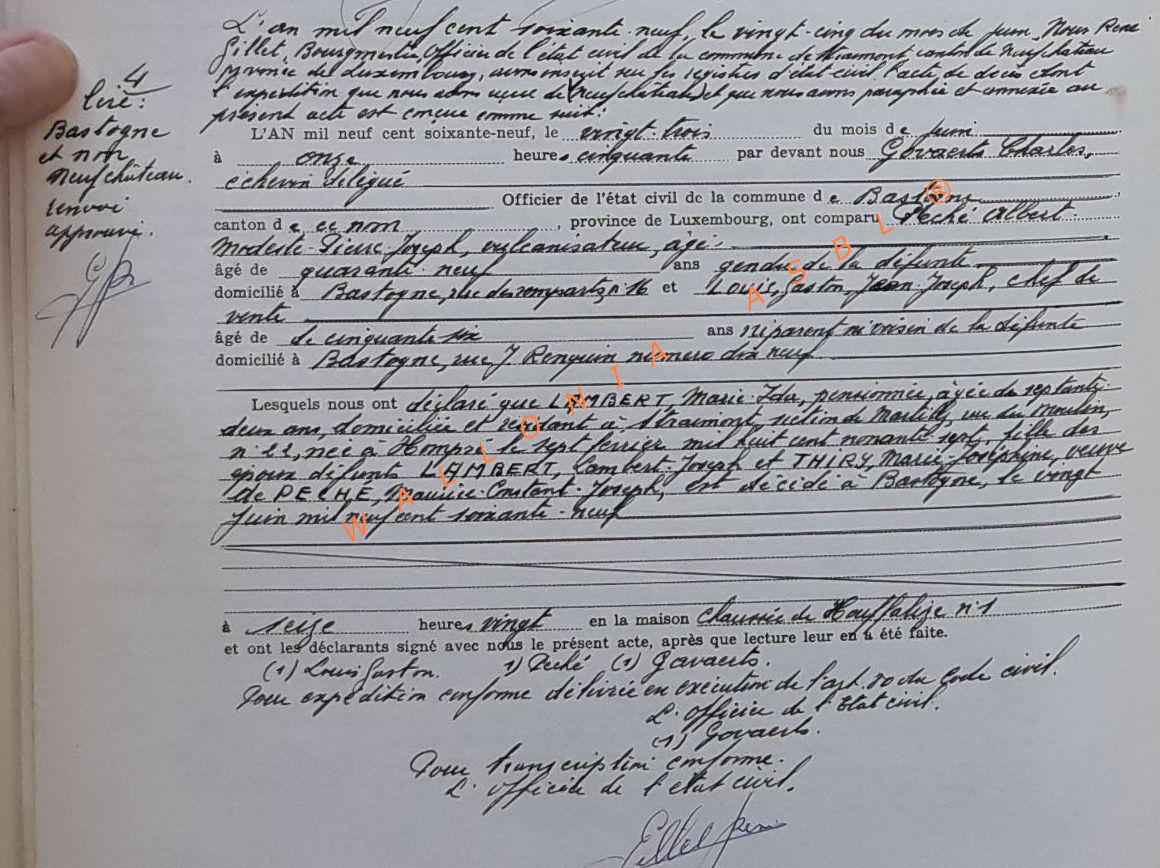 L'an mil neuf cent soixante-neuf, le vingt-cinq du mois de juin, Nous René
Gillet, Bourgmestre, Officier de l'état civil de la commune de Straimont canton de Neufchâteau
province de Luxembourg, avons inscrit sur les registres d'état-civil l'acte de décès dont
l'expédition que nous avons reçue de (Neufchâteau) et que nous avons paraphée et annexée au
présent acte est conçue comme suit:
4
lire:
Bastogne
et non
Neufchâteau.
renvoi
approuvé.
L'AN mil neuf cent soixante-neuf, le vingt-trois du mois de juin
à onze heures cinquante par devant nous Govaerts Charles,
échevin délégué
Officier de l'état civil de la commune de Bastogne
canton de ce nom, province de Luxembourg, ont comparu Péché Albert
Modeste-Pierre-Joseph, vulcanisateur, âgé
âgé de quarante-neuf ans gendre de la défunte
domicilié à Bastogne, rue des remparts n°16 et Louis, Gaston, Jean-Joseph, chef de
vente
âgé de de cinquante six ans ni parent ni voisin de la défunte
domicilié à Bastogne, rue J Renquin numéro dix neuf
Lesquels nous ont déclaré que LAMBERT, Marie-Ida, pensionnée, âgée de septante-
deux ans, domiciliée et résidant à Straimont, section de Martilly, rue du Moulin,
n°22, née à Hompré le sept février mil huit cent nonante sept, fille des
époux défunts LAMBERT, Lambert-Joseph et THIRY, Marie-Joséphine, veuve
de PECHE, Maurice-Constant-Joseph, est décédé à Bastogne, le vingt
juin mil neuf cent soixante-neuf
à seize heures vingt en la maison chaussée de Houffalize n°1
et ont les déclarants signé avec nous le présent acte, après que lecture leur en a été faite.
(1) Louis Gaston. 1) Péché (1) Govaerts.
Pour expédition conforme délivrée en exécution de l'art. 80 du Code civil.
L'Officier de l'Etat civil.
(1) Govaerts.
Pour transcription conforme.
L'Officier de l'état civil.
WALLONIA ASBL®